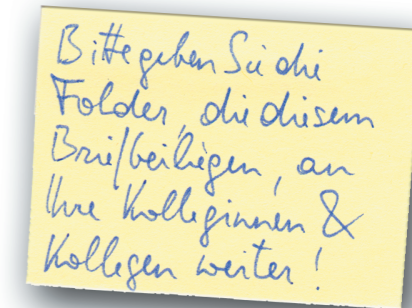 Bitte geben Sie die
Folder, die diesem
Brief beiliegen, an
Ihre Kolleginnen &
Kollegen weiter!